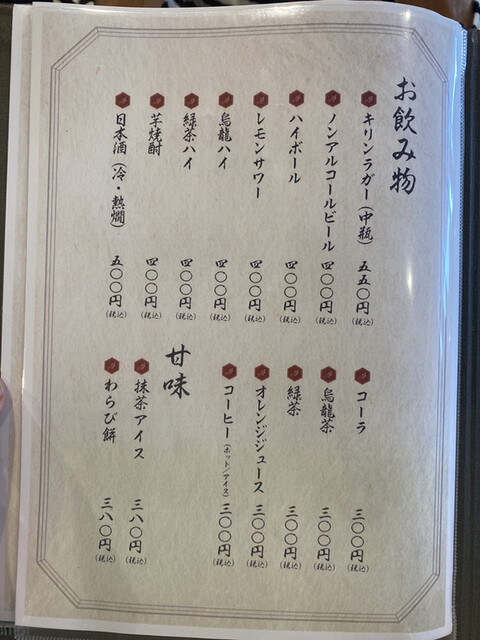 お飲み物
キリンラガー(中瓶) 五五〇円(税込)
ノンアルコールビール 四〇〇円(税込)
ハイボール 四〇〇円(税込)
レモンサワー 四〇〇円(税込)
烏龍ハイ 四〇〇円(税込)
緑茶ハイ 四〇〇円(税込)
芋焼酎 四〇〇円(税込)
日本酒(冷・熱燗) 五〇〇円(税込)
コーラ 三〇〇円(税込)
烏龍茶 三〇〇円(税込)
緑茶 三〇〇円(税込)
オレンジジュース 三〇〇円(税込)
コーヒー(ホット/アイス) 三〇〇円(税込)
甘味
抹茶アイス 三八〇円(税込)
わらび餅 三八〇円(税込)